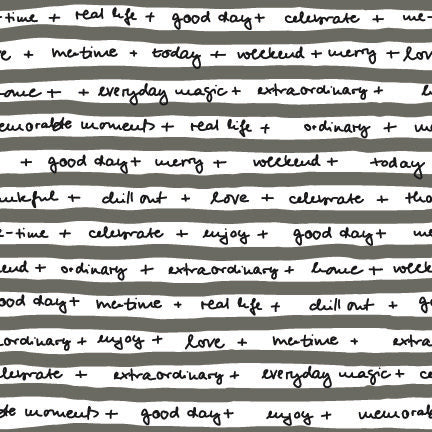 -time + real life + good day + celebrate + me-
e + me-time + today + weekend + merry + lov
ome + + everyday magic + extraordinary + h
emorable moments + real life + ordinary + m
+ good day + merry + weekend + today
ankful + chill out + love + celebrate + tha
e-time + celebrate + enjoy + good day + me
end + ordinary + extraordinary + home + week
ood day + me-time + real life + chill out + g
ordinary + enjoy + love + me-time + extra
elebrate + extraordinary + everyday magic + ce
ble moments + good day + enjoy + memorab